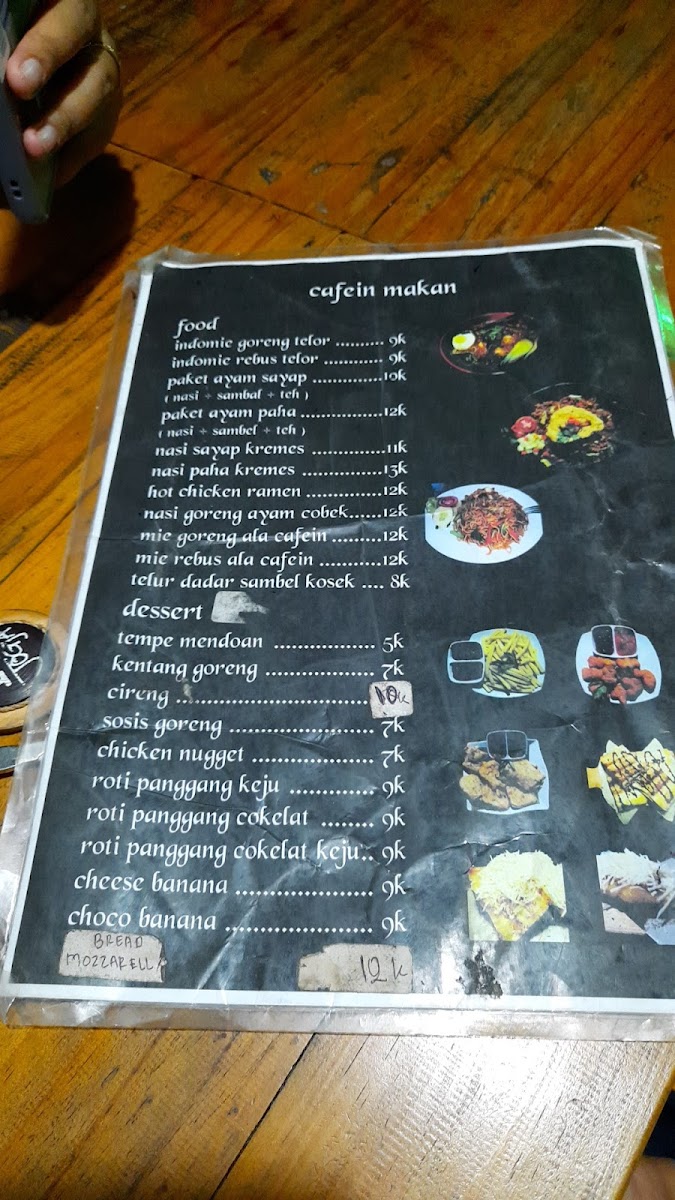 cafein makan
food
indomie goreng telor .......... 9k
indomie rebus telor ............ 9k
paket ayam sayap ..............10k
( nasi + sambal + teh )
paket ayam paha ................12k
( nasi + sambel + teh )
nasi sayap kremes ..............11k
nasi paha kremes ................13k
hot chicken ramen ..............12k
nasi goreng ayam cobek......12k
mie goreng ala cafein ..........12k
mie rebus ala cafein ............12k
telur dadar sambel kosek .... 8k
dessert
tempe mendoan .................. 5k
kentang goreng ................... 7k
cireng ................................ 10k
sosis goreng ........................ 7k
chicken nugget ................... 7k
roti panggang keju ............. 9k
roti panggang cokelat ........ 9k
roti panggang cokelat keju.. 9k
cheese banana .................... 9k
choco banana ...................... 9k
BREAD
MOZZARELLA 12k
JOGJA